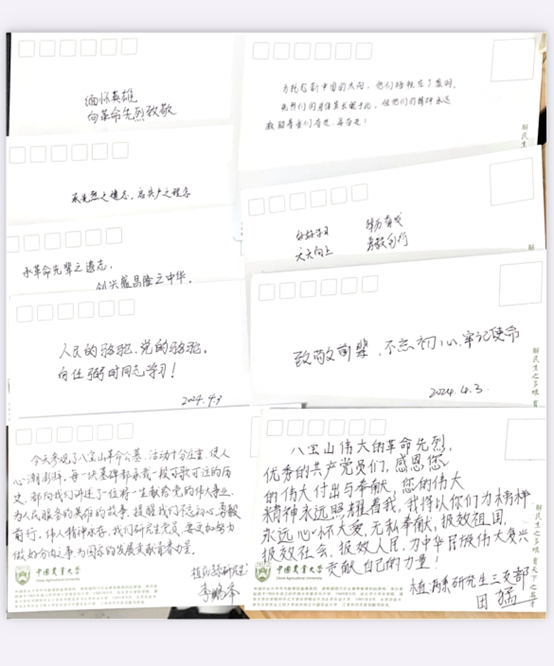 缅怀英雄
向革命先烈致敬
承先烈之遗志，启共产之程序
承革命先辈之遗志，
创兴盛昌隆之中华。
人民的骆驼，党的骆驼，
向任弼时同志学习！
2024.4.3
今天参观了八宝山革命公墓，活动十分庄重，使人
心潮澎湃，每一块墓碑都承载一段可歌可泣的历
史，都向我们讲述了一位将一生献给党的伟大事业、
为人民服务的英雄的故事，提醒我们不忘初心，勇毅
前行，伟人精神永存，我们研究生党员，要更加努力
做好分内之事，为国家的发展贡献青春力量。
中国农业大学
China Agricultural University
为托起新中国的太阳，他们牺牲在了黎明。
激励着我们奋进、再奋进！
好好学习
天天向上
踔厉奋发
勇毅前行
致敬前辈，不忘初心，牢记使命
2024.4.3
解民生之多艰
八宝山伟大的革命先烈，
优秀的共产党员们，感恩您
的伟大付出与奉献，您的伟大
精神永远照耀着我，我将以你们为精神
永远心怀大爱，无私奉献，报效祖国，
报效社会，报效人民，为中华民族伟大复兴
贡献自己的力量！
研究生三支部
田猛
中国农业大学
China Agricultural University